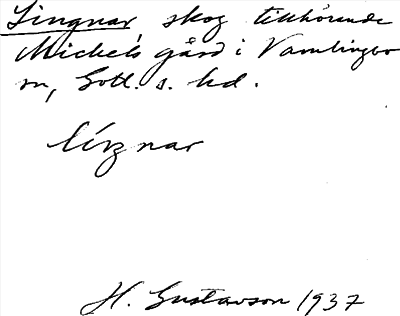 Lingnar, skog tillhörande
Mickels gård i Vamlingbo
sn, Gotl. s. hd.
H. Gustavson 1937